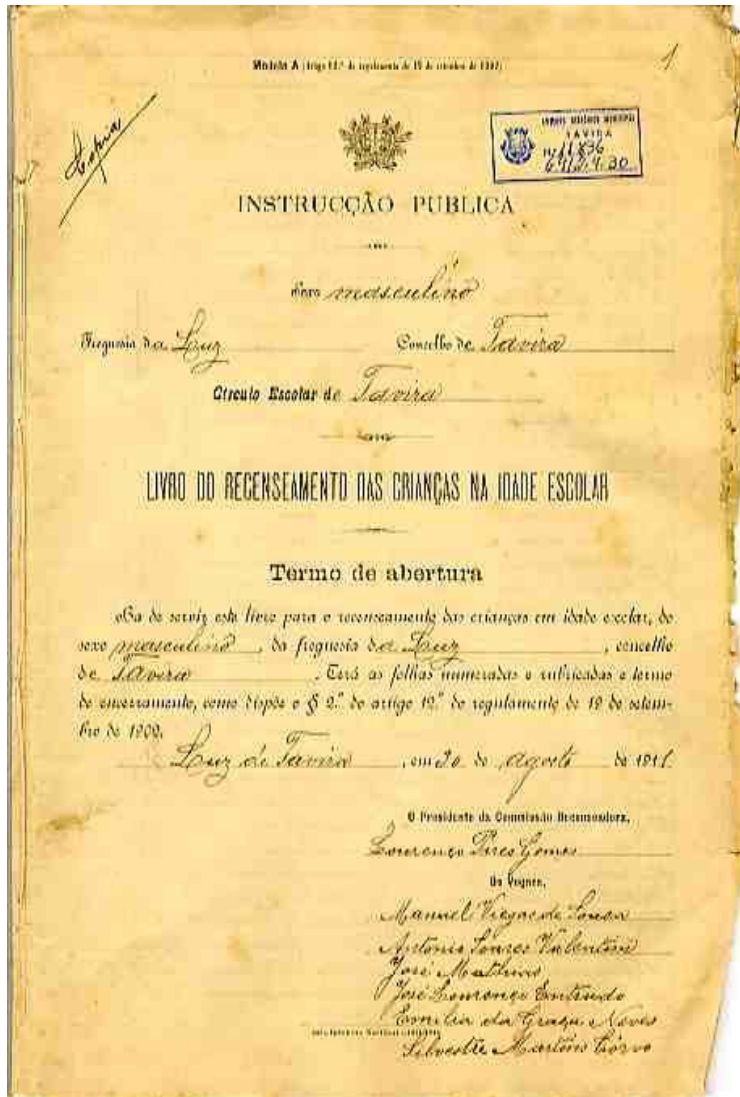 Modelo A (Artigo 12.º do regulamento de 19 de setembro de 1902)
1
Copia
ARQUIVO HISTÓRICO MUNICIPAL
TAVIRA
INSTRUCÇÃO PUBLICA
Sexo masculino
Freguesia da Luz Concelho de Tavira
Circulo Escolar de Tavira
LIVRO DO RECENSEAMENTO DAS CRIANÇAS NA IDADE ESCOLAR
Termo de abertura
Ha de servir este livro para o recenseamento das crianças em idade escolar, do
sexo masculino, da freguesia da Luz, concelho
de Tavira. Terá as folhas numeradas e rubricadas e termo
de encerramento, como dispõe o § 2.º do artigo 12.º do regulamento de 19 de setem-
bro de 1902.
Luz de Tavira, em 30 de Agosto de 1911
O Presidente da Commissão Recenseadora,
Lourenço Pires Gomes
Os Vogaes,
Manuel Viegas de Sousa
Antonio Soares Valentim
José Mathias
José Lourenço Entrudo
Emilia da Graça Neves
Silvestre Martins Corvo